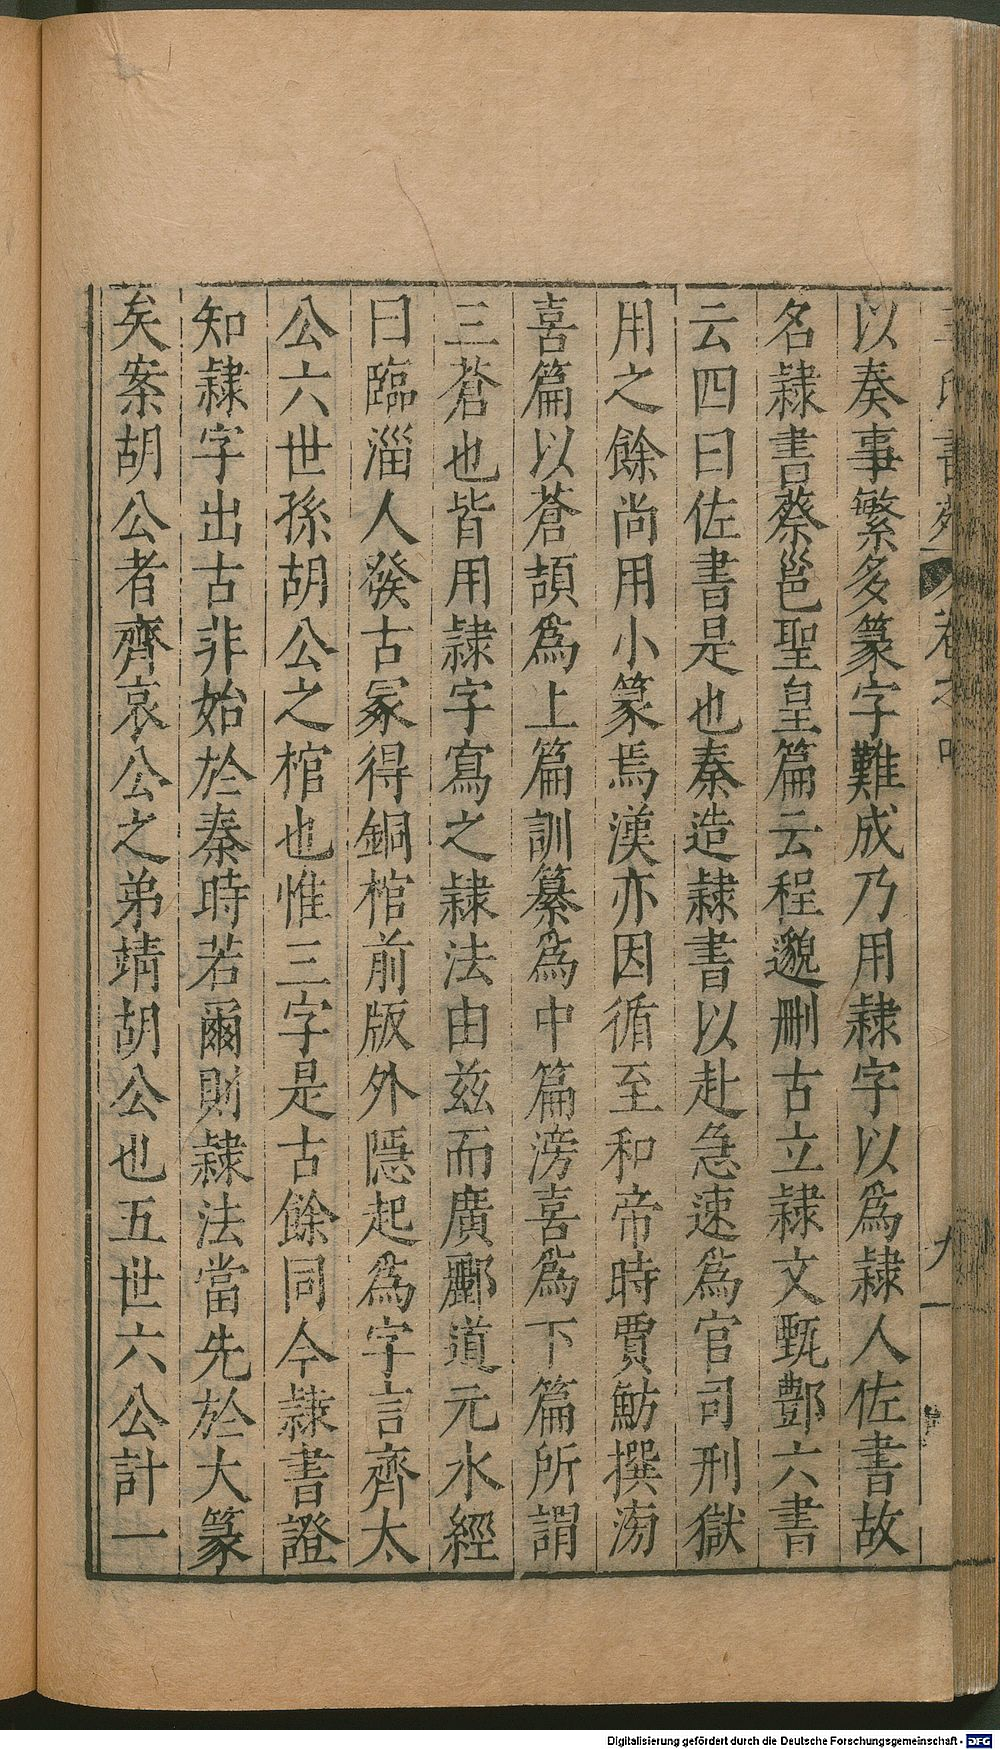 以奏事繁多篆字難成乃用隸字以爲隸人佐書故
名隸書蔡邕聖皇篇云程邈刪古立隸文甄酆六書
云四曰佐書是也秦造隸書以赴急速爲官司刑獄
用之餘尚用小篆焉漢亦因循至和帝時賈魴撰滂
喜篇以蒼頡爲上篇訓纂爲中篇滂喜爲下篇所謂
三蒼也皆用隸字寫之隸法由茲而廣酈道元水經
曰臨淄人發古冢得銅棺前版外隱起爲字言齊太
公六世孫胡公之棺也惟三字是古餘同今隸書證
知隸字出古非始於秦時若爾則隸法當先於大篆
矣案胡公者齊哀公之弟靖胡公也五世六公計一
Digitalisierung gefördert durch die Deutsche Forschungsgemeinschaft - DFG